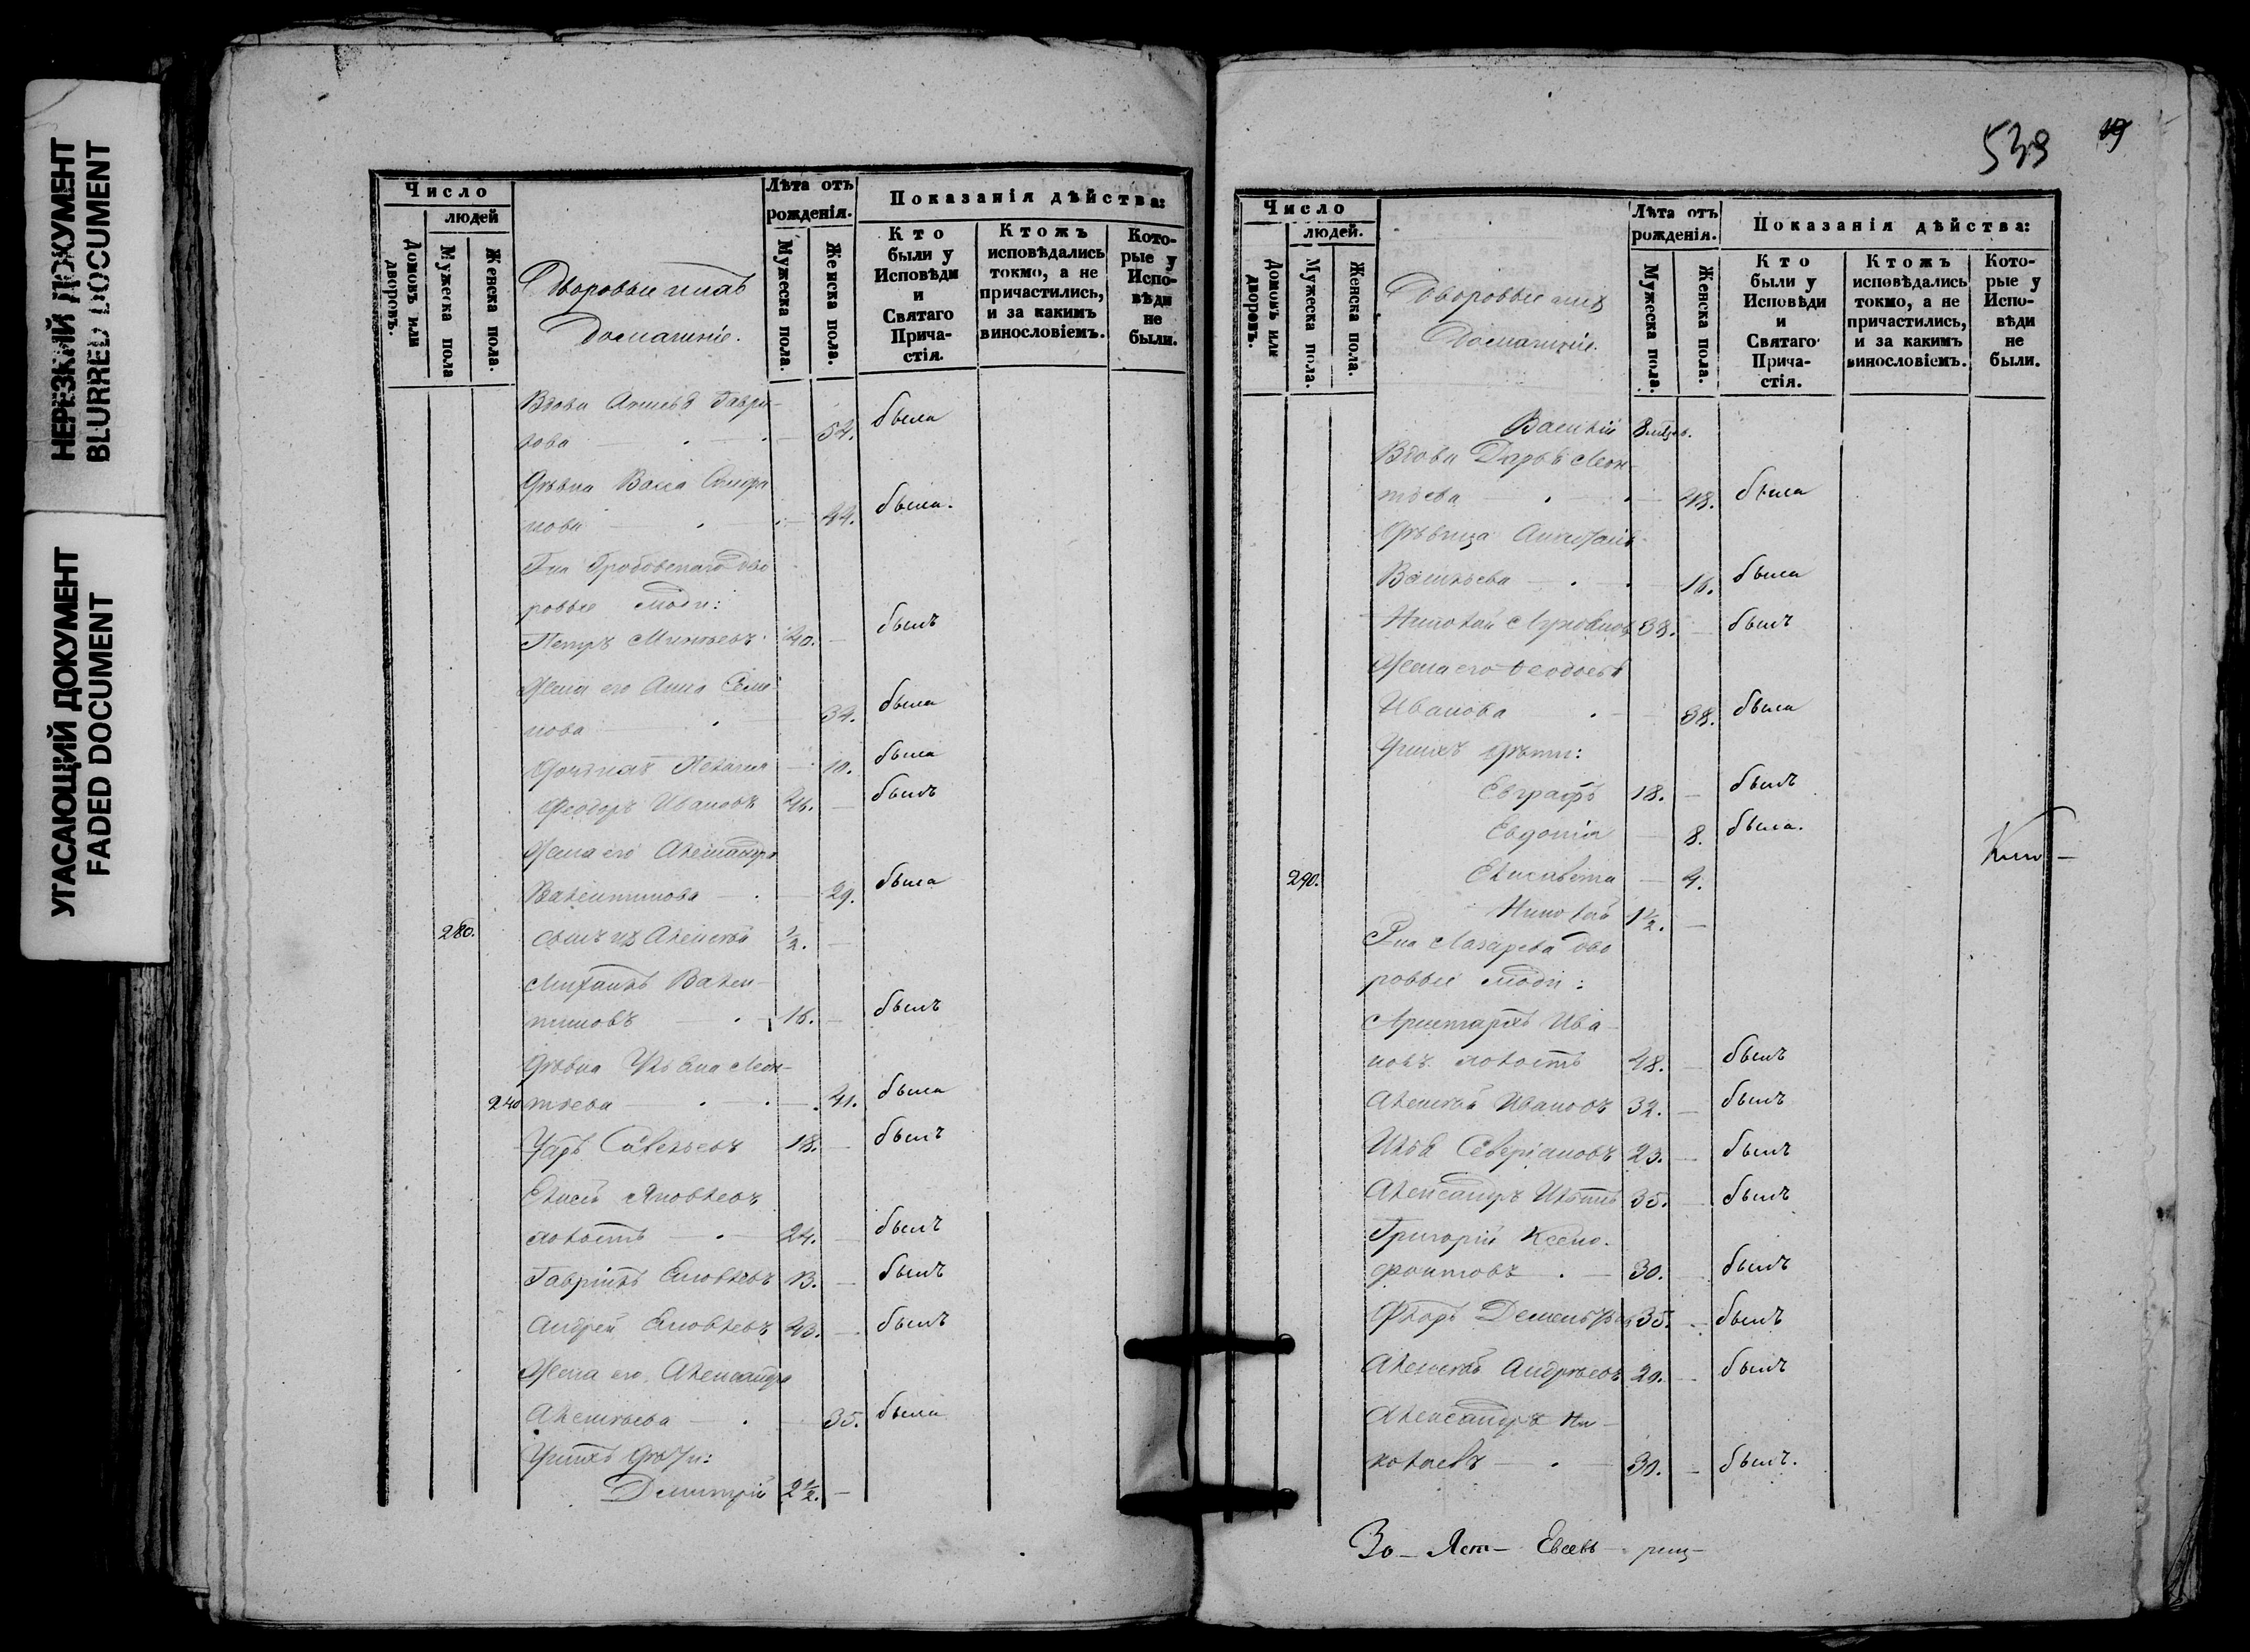 НЕРЕЗКИЙ ДОКУМЕНТ
BLURRED DOCUMENT
УГАСАЮЩИЙ ДОКУМЕНТ
FADED DOCUMENT
Число
людей
Домовъ или дворовъ.
Мужеска пола
Женска пола.
Дворовые и ихъ
Домашніе.
Лѣта отъ рожденія.
Мужеска пола.
Женска пола.
Показанія дѣйства:
Кто были у Исповѣди и Святаго Причастія.
Ктожъ исповѣдались токмо, а не причастились, и за какимъ винословіемъ.
Которые у Исповѣди не были.
Вдова Гаври-
лова 54. была
Дѣвка Васса
нова 44. была.
Гна Гробовскаго дво
ровые люди:
Петръ 40. — былъ
Жена его Анна Семе-
нова 34. была
Дочь ихъ Пелагія — 10. была
Феодоръ Ивановъ 46. — былъ
Жена его Александра
Валентинова — 29. была
280. сынъ ихъ Алексѣй ½. —
Михаилъ Вален-
тиновъ — 16. — былъ
Дѣвка Ульяна Леон-
240 тьева — 41. была
Уаръ Савельевъ 18. — былъ
Елисей Яковлевъ
холостъ — 24. — былъ
Гавріилъ Яковлевъ 13. — былъ
Андрей Яковлевъ 43. — былъ
Жена его Александра
Алексѣева — 35. была
У нихъ дѣти:
Димитрій 2½. —
539
19
Число
людей.
Домовъ или дворовъ.
Мужеска пола.
Женска пола.
Дворовые и ихъ
Домашніе.
Лѣта отъ рожденія.
Мужеска пола.
Женска пола.
Показанія дѣйства:
Кто были у Исповѣди и Святаго Причастія.
Ктожъ исповѣдались токмо, а не причастились, и за какимъ винословіемъ.
Которые у Исповѣди не были.
Василій 8 мѣсяц.
Вдова Дарья Леон-
тьева — 48. была
Дѣвица
Васильева — 16. была
Николай 38. — былъ
Жена его Ѳеодосья
Иванова — 38. была
У нихъ дѣти:
Евграфъ 18. — былъ
Евдокія — 8. была.
290. Елисавета — 4.
Николай 1½. —
Гна Лазарева дво
ровые люди:
Аристархъ Ива-
новъ холостъ 48. — былъ
Алексѣй Ивановъ 32. — былъ
Илья Северіановъ 23. — былъ
Александръ Ильинъ 35. — былъ
Григорій Ксено-
фонтовъ — 30. — былъ
Флоръ Дементьевъ 35. — былъ
Алексѣй Андреевъ 20. — былъ
Александръ Ни-
колаевъ — 30. — былъ.
Евсевъ